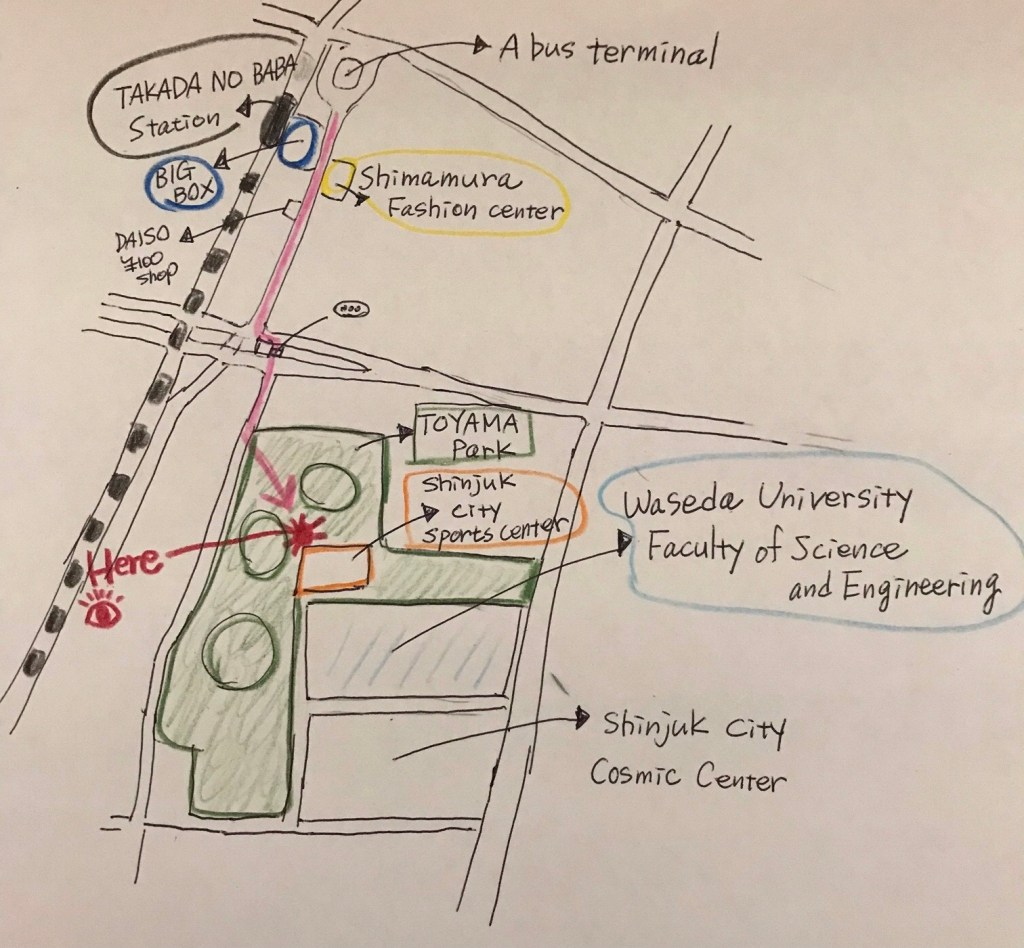 A bus terminal
TAKADA NO BABA
Station
BIG
BOX
Shimamura
Fashion center
DAISO
¥100
shop
TOYAMA
Park
Shinjuk
City
Sports center
Here
Waseda University
Faculty of Science
and Engineering
Shinjuk City
Cosmic Center